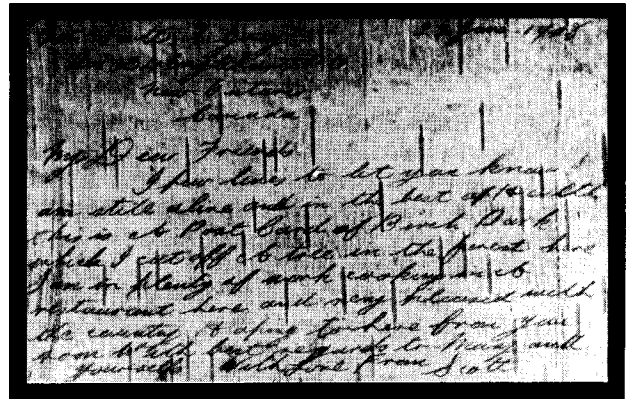 June 1908
Ontario
Canada
My Dear Friends
I few lines to let you know I
am still alive and in the best of Health
this is a Post Card of Birch Bark
which I cut off a tree in the forest here
I am in plenty of work cooking in a
restaurant here and very pleased with
the country Hoping to here from you
soon With best regards to Mary and
yourself With love From Scott